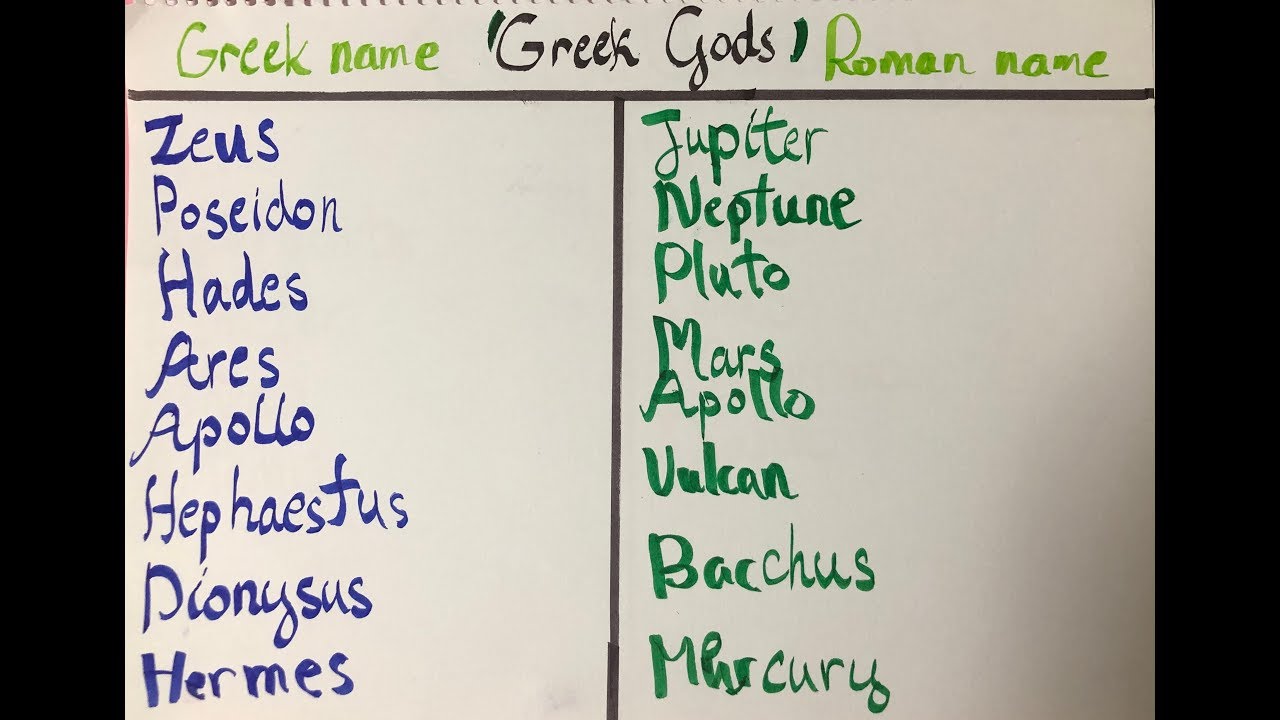 Greek name 'Greek Gods' Roman name
Zeus Jupiter
Poseidon Neptune
Hades Pluto
Ares Mars
Apollo Apollo
Hephaestus Vulcan
Dionysus Bacchus
Hermes Mercury